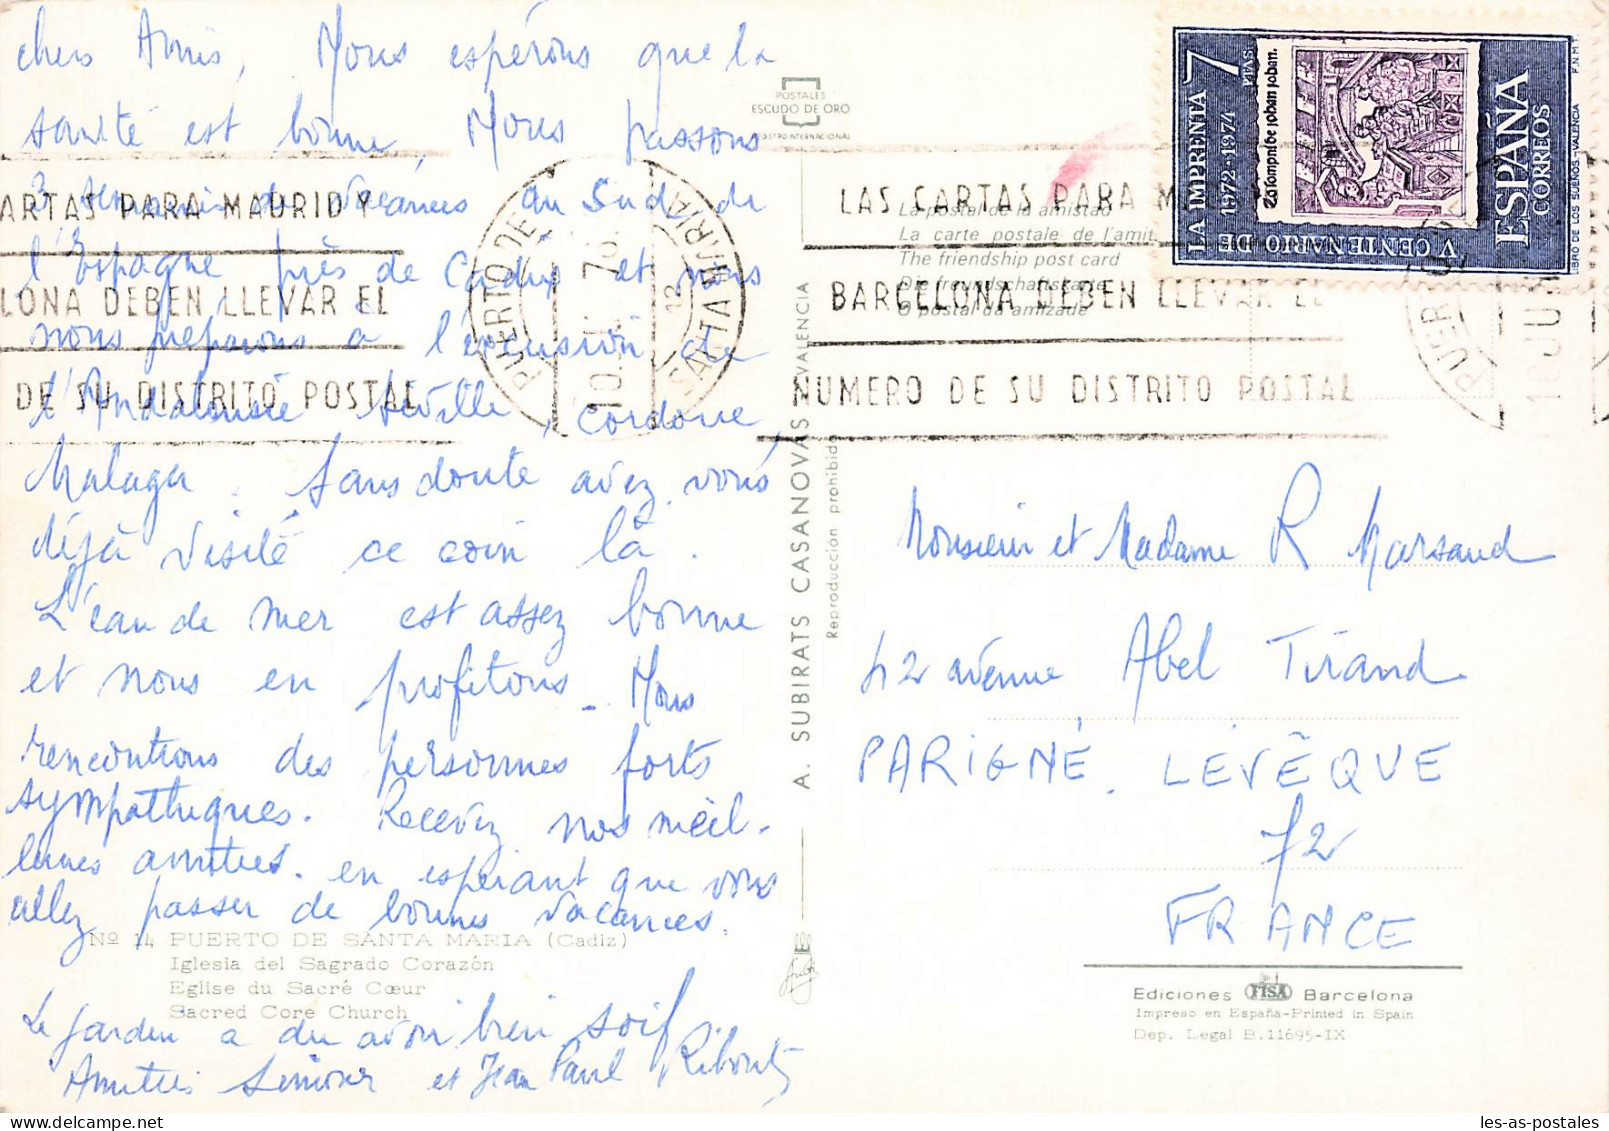 chers Amis, Nous espérons que la
santé est bonne, Nous passons
3 semaines de vacances au Sud de
l'Espagne près de Cadix et nous
nous préparons à l'excursion de
l'Andalousie Séville, Cordoue,
Malaga. Sans doute avez vous
déjà visité ce coin là.
L'eau de mer est assez bonne
et nous en profitons - Nous
rencontrons des personnes forts
sympathiques. Recevez nos meil-
leures amitiés. en espérant que vous
allez passer de bonnes vacances.
Nº 14 PUERTO DE SANTA MARIA (Cadiz)
Iglesia del Sagrado Corazón
Eglise du Sacré Cœur
Sacred Core Church
Le jardin a du avoir bien soif
Amitiés Simone et Jean Paul
POSTALES
ESCUDO DE ORO
REGISTRO INTERNACIONAL
La postal de la amistad
La carte postale de l'amitié
The friendship post card
Die freundschaftskarte
O postal da amizade
ARTAS PARA MADRID Y
LONA DEBEN LLEVAR EL
DE SU DISTRITO POSTAL
PUERTO DE SANTA MARIA
10 JU 76
12
LAS CARTAS PARA M
BARCELONA DEBEN LLEVAR EL
NUMERO DE SU DISTRITO POSTAL
PUER
10 JU
V CENTENARIO DE LA IMPRENTA
1972-1974
7 PTAS.
ESPAÑA
CORREOS
LIBRO DE LOS SUEÑOS.-VALENCIA
F.N.M.T.
A. SUBIRATS CASANOVAS VALENCIA
Reproducción prohibida
Monsieur et Madame R Marsaud
42 avenue Abel Tirand
PARIGNÉ. LEVÊQUE
72
FRANCE
Ediciones FISA Barcelona
Impreso en España-Printed in Spain
Dep. Legal B.11695-IX
les-as-postales